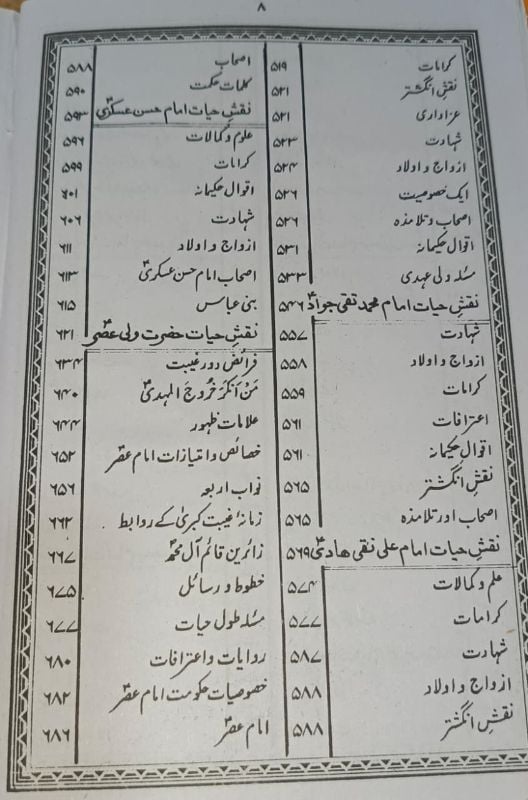 ۸
کرامات ۵۱۹
نقش انگشتر ۵۲۱
عزاداری ۵۲۱
شہادت ۵۲۳
ازواج و اولاد ۵۲۴
ایک خصوصیت ۵۲۶
اصحاب و تلامذہ ۵۲۶
اقوال حکیمانہ ۵۳۱
مسئلہ ولی عہدی ۵۳۳
نقش حیات امام محمد تقی جوادؑ ۵۴۶
شہادت ۵۵۷
ازواج و اولاد ۵۵۸
کرامات ۵۵۹
اعترافات ۵۶۱
اقوال حکیمانہ ۵۶۱
نقش انگشتر ۵۶۵
اصحاب اور تلامذہ ۵۶۵
نقش حیات امام علی نقی ھادیؑ ۵۶۹
علم و کمالات ۵۷۴
کرامات ۵۷۷
شہادت ۵۸۷
ازواج و اولاد ۵۸۸
نقش انگشتر ۵۸۸
اصحاب ۵۸۸
کلمات حکمت ۵۹۰
نقش حیات امام حسن عسکریؑ ۵۹۳
علوم و کمالات ۵۹۶
کرامات ۵۹۹
اقوال حکیمانہ ۶۰۱
شہادت ۶۰۶
ازواج و اولاد ۶۱۱
اصحاب امام حسن عسکریؑ ۶۱۳
بنی عباس ۶۱۵
نقش حیات حضرت ولی عصرؑ ۶۲۱
فرائض دور غیبت ۶۳۴
مَنْ اَنْکَرَ خُرُوجَ المہدیؑ ۶۴۰
علامات ظہور ۶۴۴
خصائص و امتیازات امام عصرؑ ۶۵۲
نواب اربعہ ۶۵۶
زمانۂ غیبت کبریٰ کے روابط ۶۶۲
زائرین قائم آل محمدؐ ۶۶۷
خطوط و رسائل ۶۷۵
مسئلہ طول حیات ۶۷۷
روایات و اعترافات ۶۸۰
خصوصیات حکومت امام عصرؑ ۶۸۲
امام عصرؑ ۶۸۶